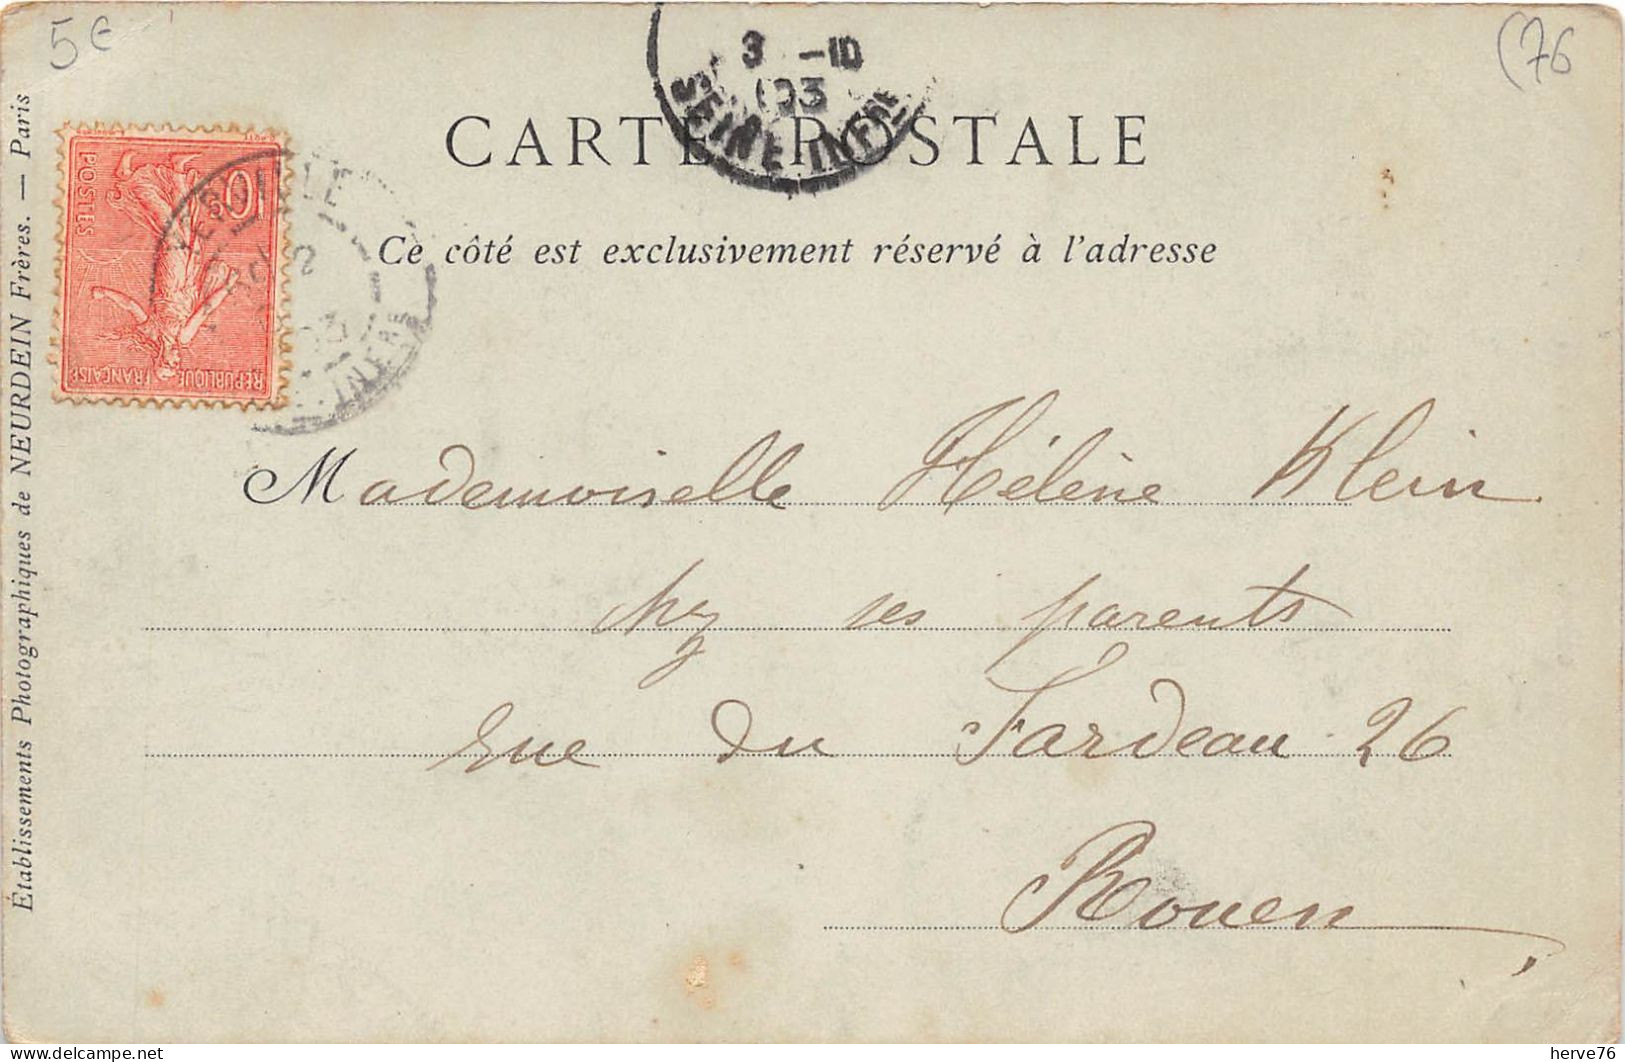 5€
(76
3 -10
03
SEINE INFRE
CARTE POSTALE
Ce côté est exclusivement réservé à l'adresse
10
POSTES
REPUBLIQUE FRANÇAISE
2
03
INFRE
Établissements Photographiques de NEURDEIN Frères. — Paris
Mademoiselle Hélène Klein
chez ses parents
rue du Fardeau 26
Rouen
Delcampe.net
herve76